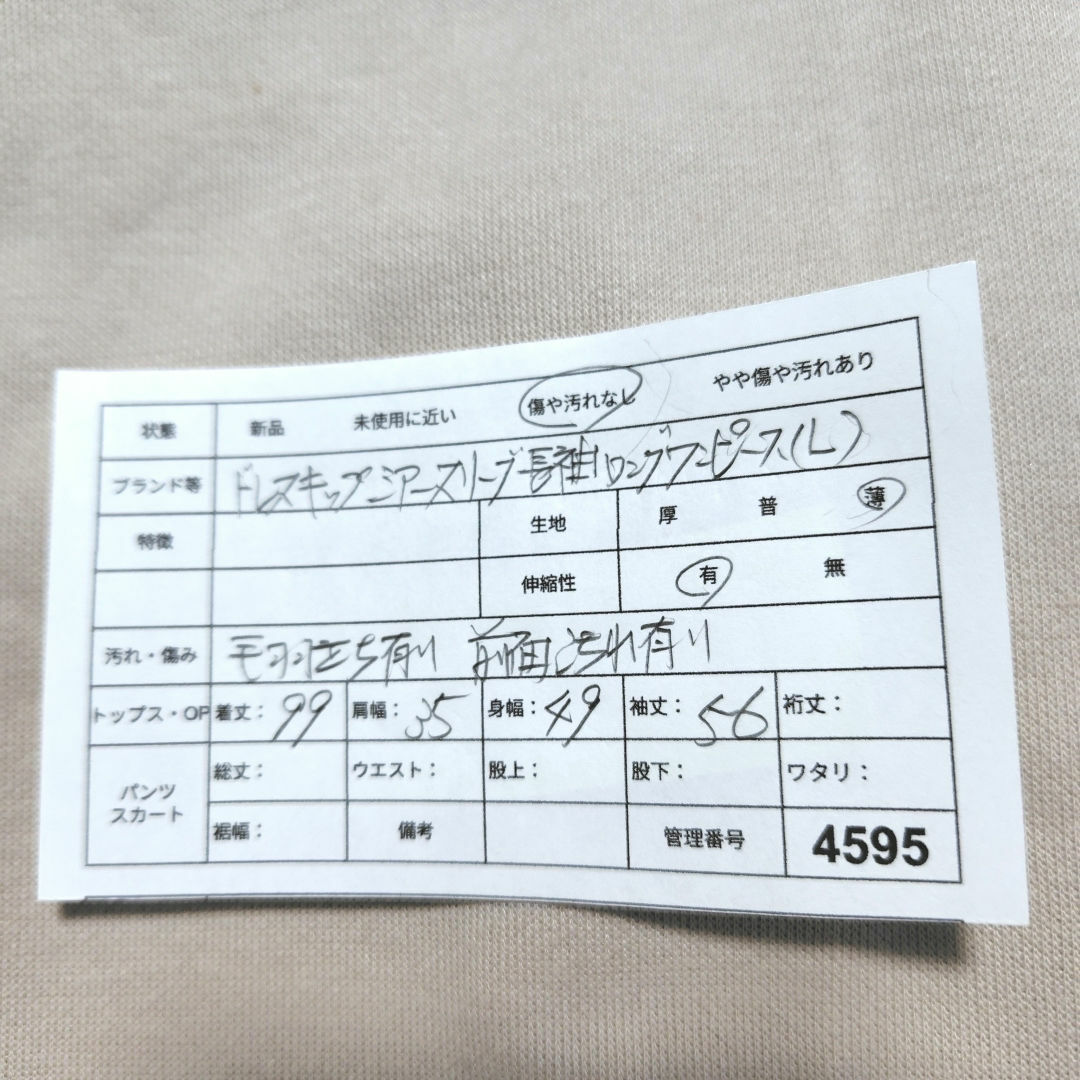 状態 新品 未使用に近い 傷や汚れなし やや傷や汚れあり
ブランド等 ドレスキップ シアースリーブ長袖ロングワンピース(L)
特徴 生地 厚 普 薄
伸縮性 有 無
汚れ・傷み 毛羽立ち有り 前面汚れ有り
トップス・OP 着丈：99 肩幅：35 身幅：49 袖丈：56 裄丈：
パンツ スカート 総丈： ウエスト： 股上： 股下： ワタリ：
裾幅： 備考 管理番号 4595